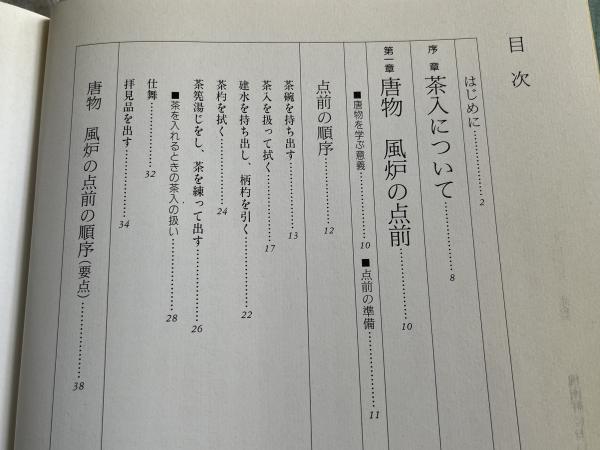 目次
はじめに……………2
序章 茶入について……………8
第一章 唐物 風炉の点前……………10
■唐物を学ぶ意義……………10 ■点前の準備……………11
点前の順序……………12
茶碗を持ち出す……………13
茶入を扱って拭く……………17
建水を持ち出し、柄杓を引く……………22
茶杓を拭く……………24
茶筅湯じをし、茶を練って出す……………26
■茶を入れるときの茶入の扱い……………28
仕舞……………32
拝見品を出す……………34
唐物 風炉の点前の順序(要点)……………38